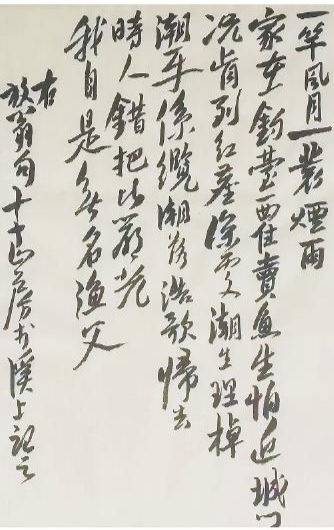 一竿風月一蓑煙雨
家在釣臺西住賣魚生怕近城門
况肯到紅塵深處潮生理棹
潮平係纜潮落浩歌歸去
時人錯把比嚴光
我自是無名漁父
右
放翁句十山房於溪上記之